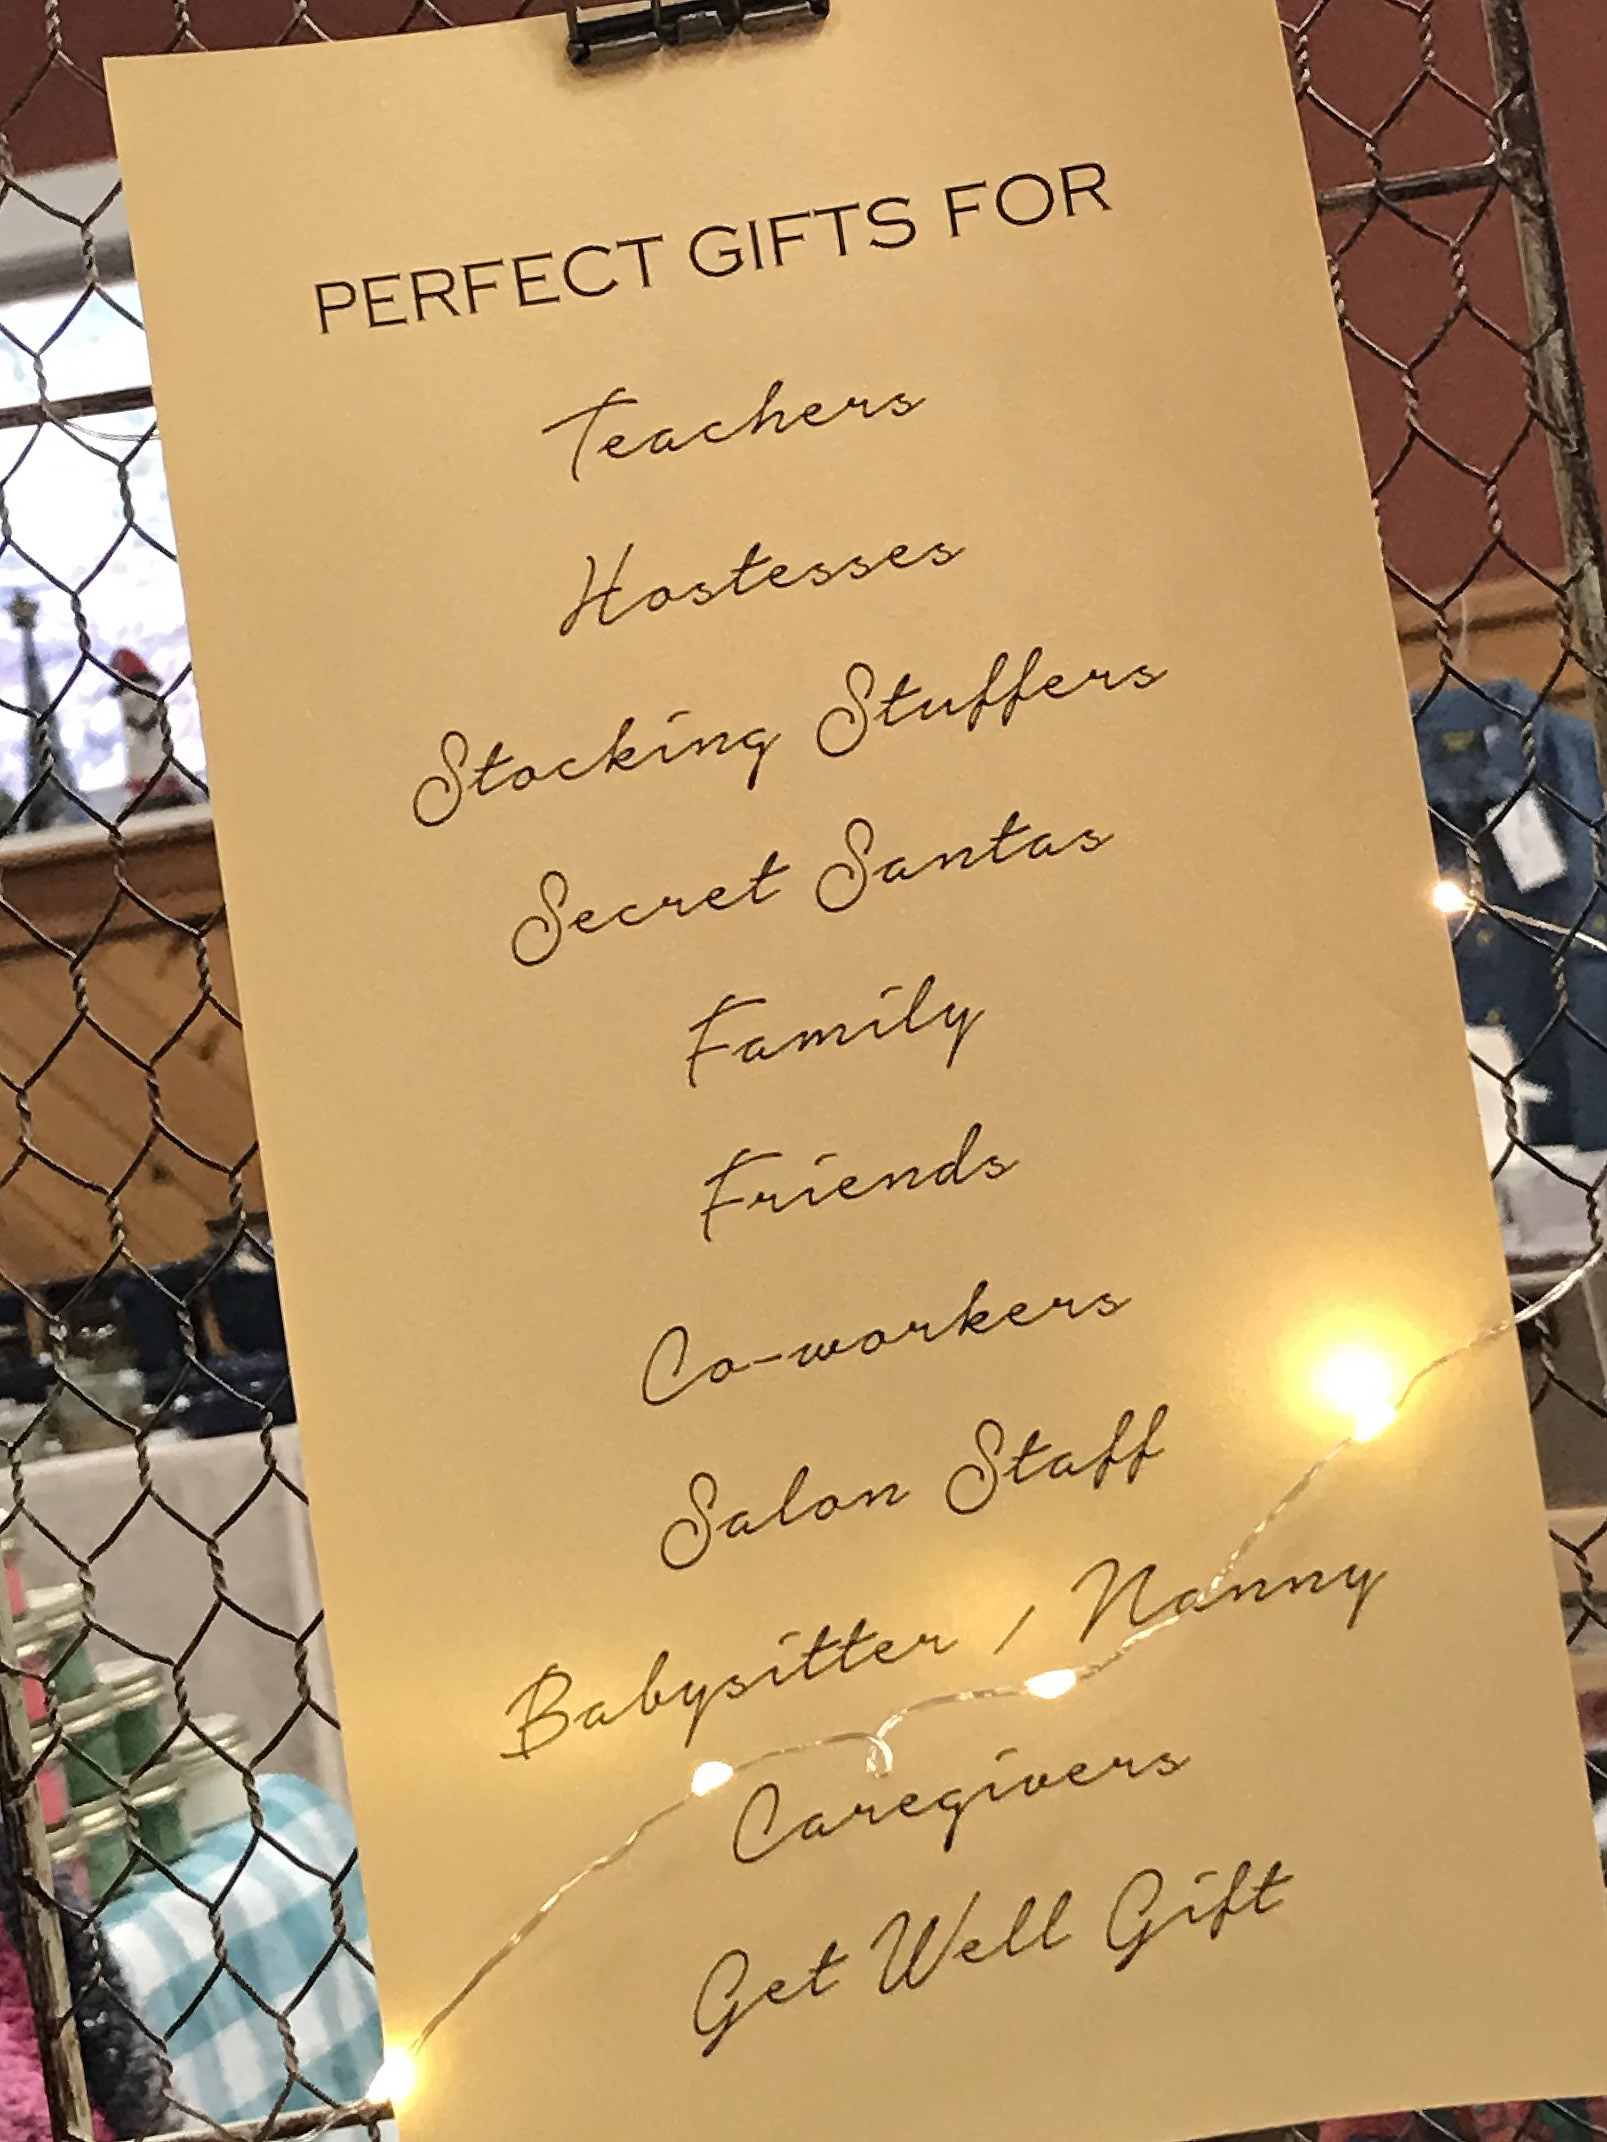 PERFECT GIFTS FOR
Teachers
Hostesses
Stocking Stuffers
Secret Santas
Family
Friends
Co-workers
Salon Staff
Babysitter / Nanny
Caregivers
Get Well Gift